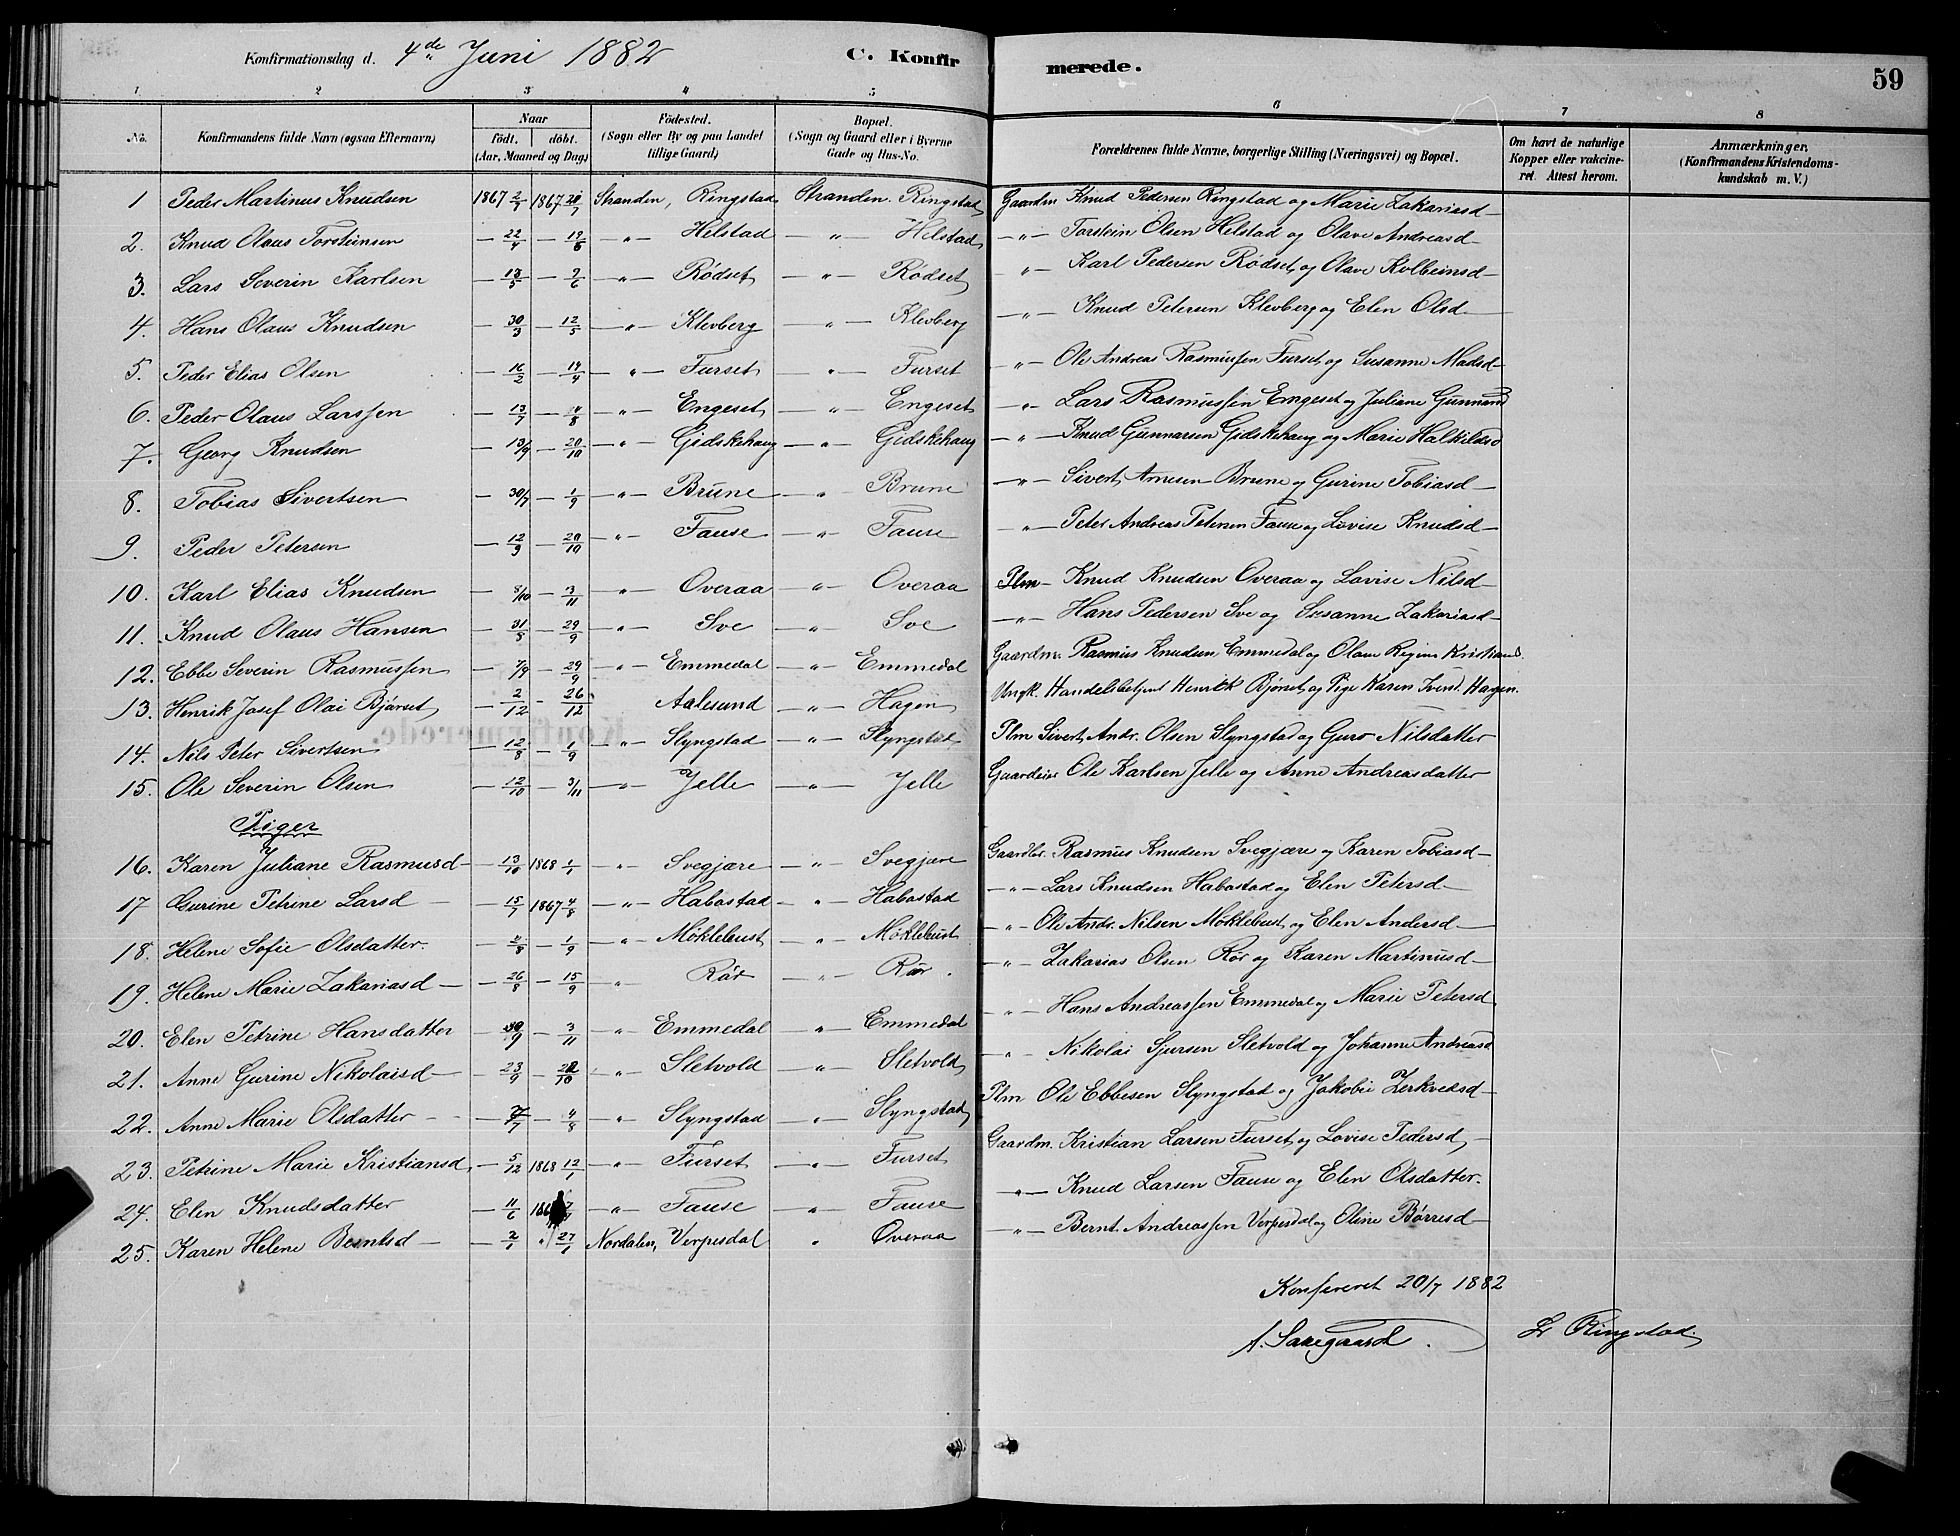 Konfirmationsdag d. 4de Juni 1882 C. Konfirmerede. 59
1 2 3 4 5 6 7 8
No. Konfirmandens fulde Navn (ogsaa Efternavn) Naar födt. döbt. (Aar, Maaned og Dag) Födested. (Sogn eller By og paa Landet tillige Gaard) Bopæl. (Sogn og Gaard eller i Byerne Gade og Hus-No. Forældrenes fulde Navne, borgerlige Stilling (Næringsvei) og Bopæl. Om havt de naturlige Kopper eller vakcineret. Attest herom. Anmærkninger. (Konfirmandens Kristendomskundskab m. V.)
1 Peder Martinus Knudsen 1867 2/7 1867 20/7 Stranden, Ringstad Stranden. Ringstad Gaardm Knud Pedersen Ringstad og Marie Zakariasd—
2. Knud Olaus Torsteinsen — 22/4 — 19/6 —„— Helstad —„— Helstad —„— Torstein Olsen Helstad og Olave Andreasd—
3. Lars Severin Karlsen — 13/5 — 2/6 —„— Rødset —„— Rødset —„— Karl Pedersen Rødset og Olave Kolbeinsd—
4. Hans Olaus Knudsen — 30/3 — 12/5 —„— Klevberg —„— Klevberg —„— Knud Petersen Klevberg og Elen Olsd—
5. Peder Elias Olsen — 16/2 — 14/4 —„— Furset —„— Furset —„— Ole Andreas Rasmussen Furset og Susanne Madsd—
6. Peder Olaus Larssen — 13/7 — 4/8 —„— Engeset —„— Engeset —„— Lars Rasmussen Engeset og Juliane Gunnard
7. Georg Knudsen — 13/9 — 20/10 —„— Gidskehaug —„— Gidskehaug —„— Knud Gunnarsen Gidskehaug og Marie Halkildsd
8. Tobias Sivertsen — 30/7 — 1/9 —„— Brune —„— Brune —„— Sivert Arnesen Brune og Gurine Tobiasd—
9. Peder Petersen — 12/9 — 20/10 —„— Fause —„— Fause —„— Peter Andreas Petersen Fause og Lovise Knudsd—
10. Karl Elias Knudsen — 8/10 — 3/11 —„— Overaa —„— Overaa Plm— Knud Knudsen Overaa og Lovise Nilsd—
11. Knud Olaus Hansen — 31/8 — 29/9 —„— Sve —„— Sve —„— Hans Pedersen Sve og Susanne Zakariasd—
12. Ebbe Severin Rasmussen — 7/9 — 29/9 —„— Emmedal —„— Emmedal Gaardm. Rasmus Knudsen Emmedal og Olave Regine Kristiansd.
13. Henrik Josef Olai Bjørset — 2/12 — 26/12 Aalesund —„— Hagen Ungk. Handelsbetjent Henrik Bjørset og Pige Karen Ivensd. Hagen.
14. Nils Peter Sivertsen — 12/8 — 1/9 —„— Slyngstad —„— Slyngstad Plm Sivert Andr. Olsen Slyngstad og Guro Nilsdatter
15. Ole Severin Olsen — 12/10 — 3/11 —„— Jelle —„— Jelle Gaardeier Ole Karlsen Jelle og Anne Andreasdatter
Piger
16. Karen Juliane Rasmusd— — 13/10 1868 1/1 „ Svegjære —„— Svegjære Gaardbr. Rasmus Knudsen Svegjære og Karen Tobiasd—
17 Gurine Petrine Larsd — — 15/7 1867 4/8 —„— Habostad —„— Habostad —„— Lars Knudsen Habostad og Elen Petersd—
18. Helene Sofie Olsdatter. — 4/8 — 1/9 —„— Møklebust —„— Møklebust —„— Ole Andr. Nilsen Møklebust og Elen Andersd—
19. Helene Marie Zakariasd — — 26/8 — 15/9 „ Rør —„— Rør. —„— Zakarias Olsen Rør og Karen Martinusd—
20. Elen Petrine Hansdatter — 30/9 — 3/11 —„— Emmedal —„— Emmedal —„— Hans Andreassen Emmedal og Marie Petersd
21. Anne Gurine Nikolaisd— — 23/9 — 20/10 „ Sletvold —„— Sletvold —„— Nikolai Sjursen Sletvold og Johanne Andreasd
22. Anne Marie Olsdatter — — 7/7 — 4/8 —„— Slyngstad —„— Slyngstad Plm Ole Ebbesen Slyngstad og Jakobie Zerkvedsd—
23. Petrine Marie Kristiansd — 5/12 1868 12/1 —„— Furset —„— Furset Gaardm. Kristian Larsen Furset og Lovise Pedersd—
24. Elen Knudsdatter — 11/6 —„— Fause „ Fause —„— Knud Larsen Fause og Elen Olsdatter.
25. Karen Helene Berntsd — — 2/1 „ 27/1 Nordalen, Verpesdal „ Overaa —„— Bernt Andreassen Verpesdal og Oline Børresd—
Konfereret 20/7 1882
L Ringstad.